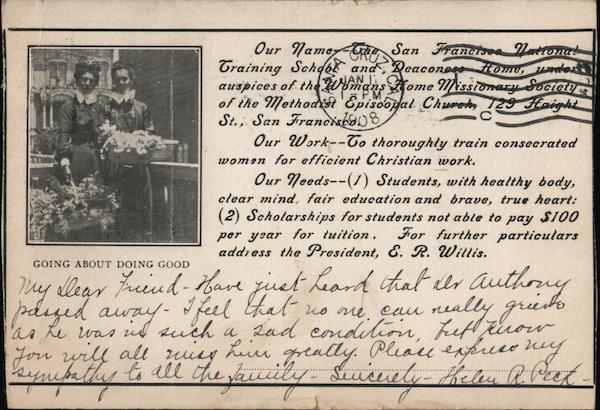 Our Name--The San Francisco National
Training School and Deaconess Home, under
auspices of the Womans Home Missionary Society
of the Methodist Episcopal Church, 129 Haight
St., San Francisco.
Our Work--To thoroughly train consecrated
women for efficient Christian work.
Our Needs--(1) Students, with healthy body,
clear mind, fair education and brave, true heart:
(2) Scholarships for students not able to pay $100
per year for tuition. For further particulars
address the President, E. R. Willis.
SANTA CRUZ, CAL.
JAN 1
5 PM
1908
C
GOING ABOUT DOING GOOD
My Dear Friend - Have just heard that Dr Anthony
passed away - I feel that no one can really grieve
as he was in such a sad condition, but know
you will all miss him greatly. Please express my
sympathy to all the family - Sincerely - Helen R. Peck -